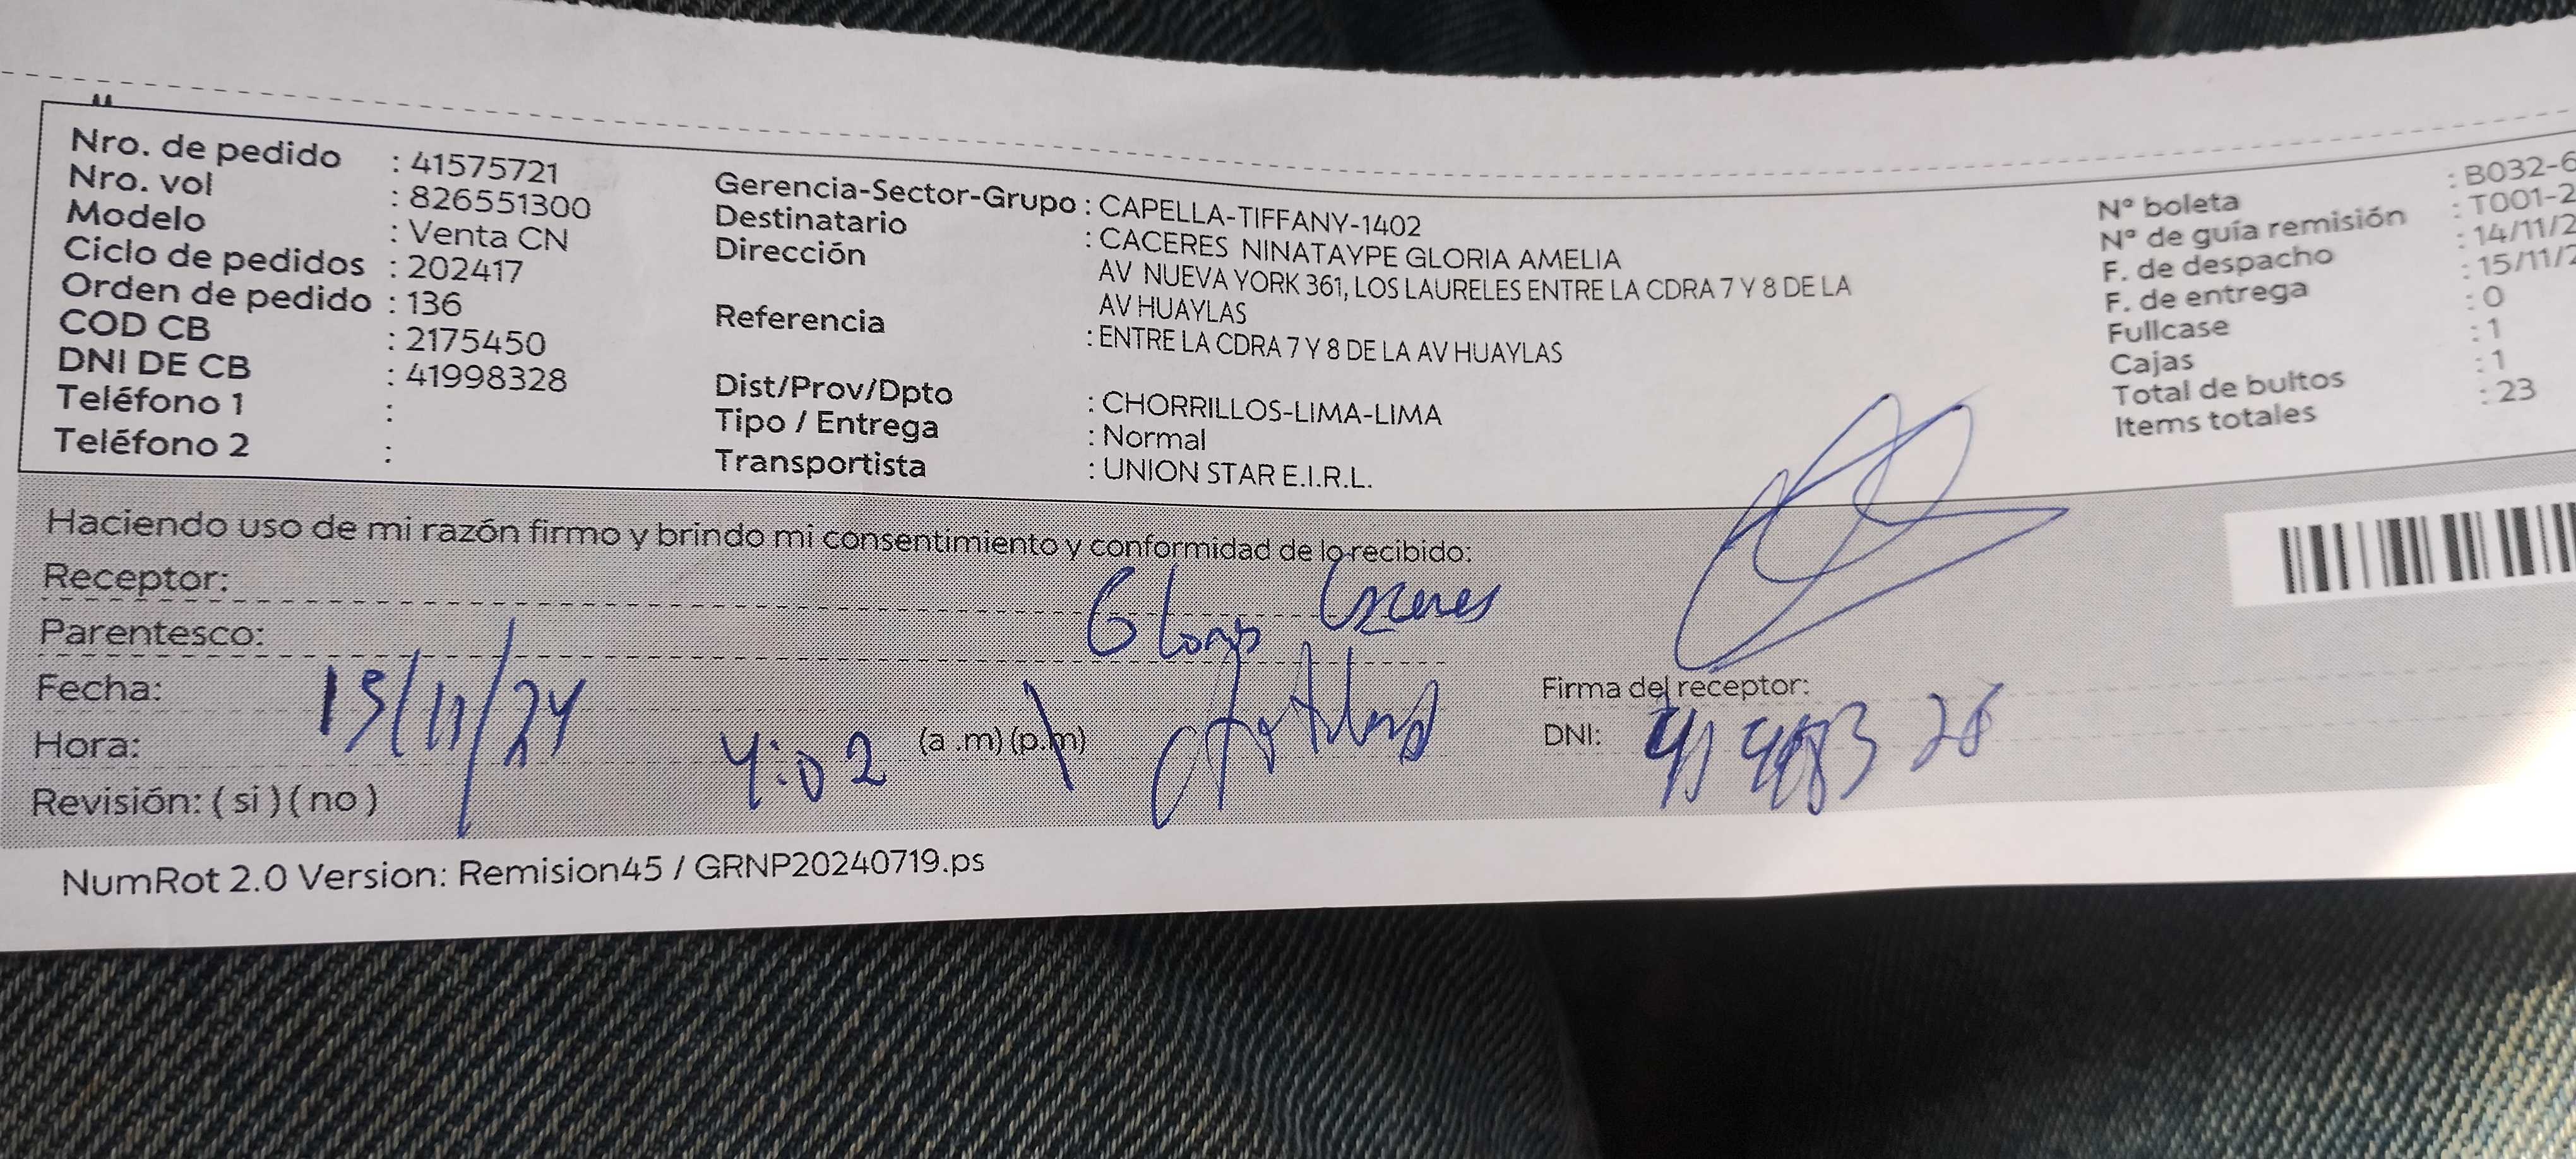 Nro. de pedido : 41575721
Nro. vol : 826551300
Modelo : Venta CN
Ciclo de pedidos : 202417
Orden de pedido : 136
COD CB : 2175450
DNI DE CB : 41998328
Teléfono 1 :
Teléfono 2 :
Gerencia-Sector-Grupo : CAPELLA-TIFFANY-1402
Destinatario : CACERES NINATAYPE GLORIA AMELIA
Dirección AV NUEVA YORK 361, LOS LAURELES ENTRE LA CDRA 7 Y 8 DE LA
AV HUAYLAS
Referencia : ENTRE LA CDRA 7 Y 8 DE LA AV HUAYLAS
Dist/Prov/Dpto : CHORRILLOS-LIMA-LIMA
Tipo / Entrega : Normal
Transportista : UNION STAR E.I.R.L.
Nº boleta : B032-6
Nº de guía remisión : T001-2
F. de despacho : 14/11/2
F. de entrega : 15/11/2
Fullcase : 0
Cajas : 1
Total de bultos : 1
Items totales : 23
Haciendo uso de mi razón firmo y brindo mi consentimiento y conformidad de lo recibido:
Receptor: Gloria Caceres
Parentesco:
Fecha: 15/11/24
Hora: 4:02 (a.m) (p.m)
Revisión: ( si ) ( no )
Firma del receptor:
DNI:
NumRot 2.0 Version: Remision45 / GRNP20240719.ps